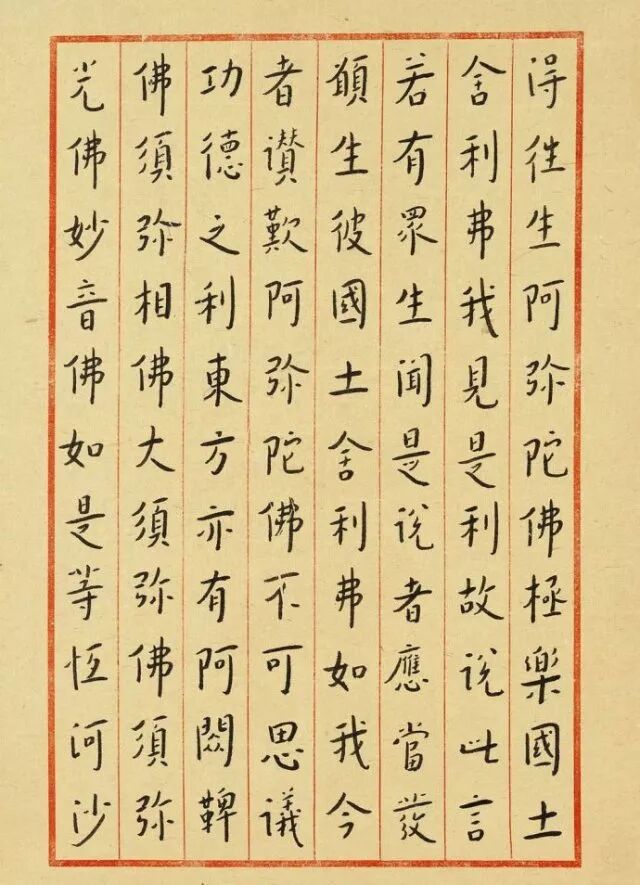 得往生阿弥陀佛極樂國土
舍利弗我見是利故说此言
若有眾生闻是说者應當發
願生彼國土舍利弗如我今
者讃歎阿弥陀佛不可思議
功德之利東方亦有阿閦鞞
佛須弥相佛大須弥佛須弥
光佛妙音佛如是等恆河沙